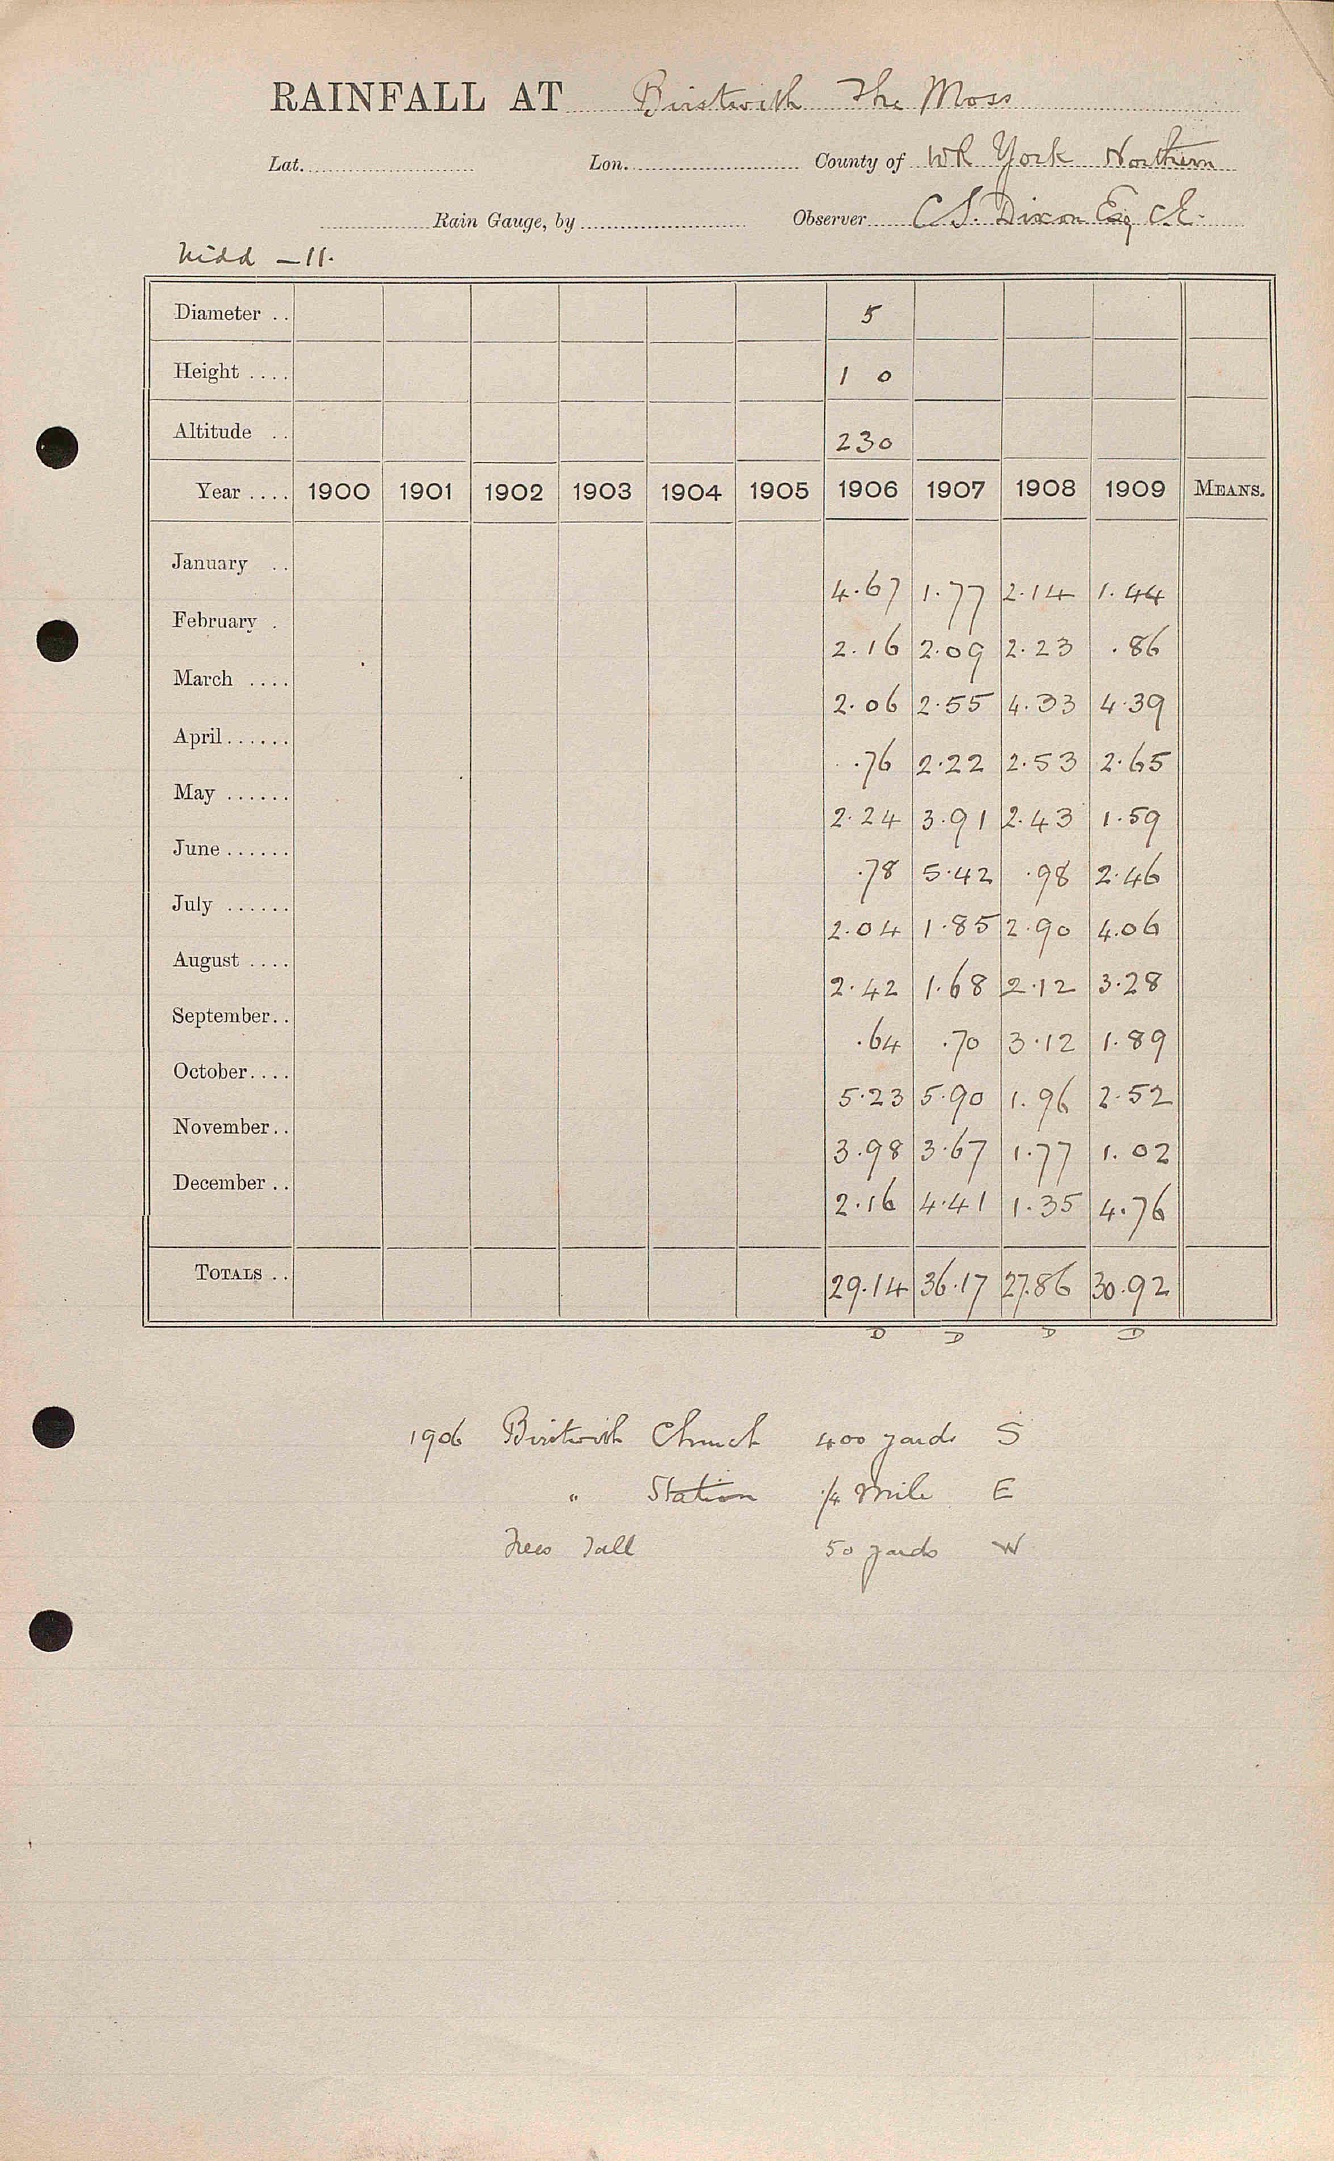 RAINFALL AT Birstwith The Moss
Lat. Lon. County of WR York Northern
Rain Gauge, by Observer C S. Dixon Esq C.E.
Nidd - 11.
Diameter .. 5
Height .... 1 0
Altitude .. 230
Year .... 1900 1901 1902 1903 1904 1905 1906 1907 1908 1909 MEANS.
January .. 4.67 1.77 2.14 1.44
February . 2.16 2.09 2.23 .86
March .... 2.06 2.55 4.33 4.39
April...... .76 2.22 2.53 2.65
May ...... 2.24 3.91 2.43 1.59
June ...... .78 5.42 .98 2.46
July ...... 2.04 1.85 2.90 4.06
August .... 2.42 1.68 2.12 3.28
September.. .64 .70 3.12 1.89
October.... 5.23 5.90 1.96 2.52
November.. 3.98 3.67 1.77 1.02
December .. 2.16 4.41 1.35 4.76
TOTALS .. 29.14 36.17 27.86 30.92
D D D D
1906 Birstwith Church 400 yards S
" Station 1/4 mile E
Trees tall 50 yards W